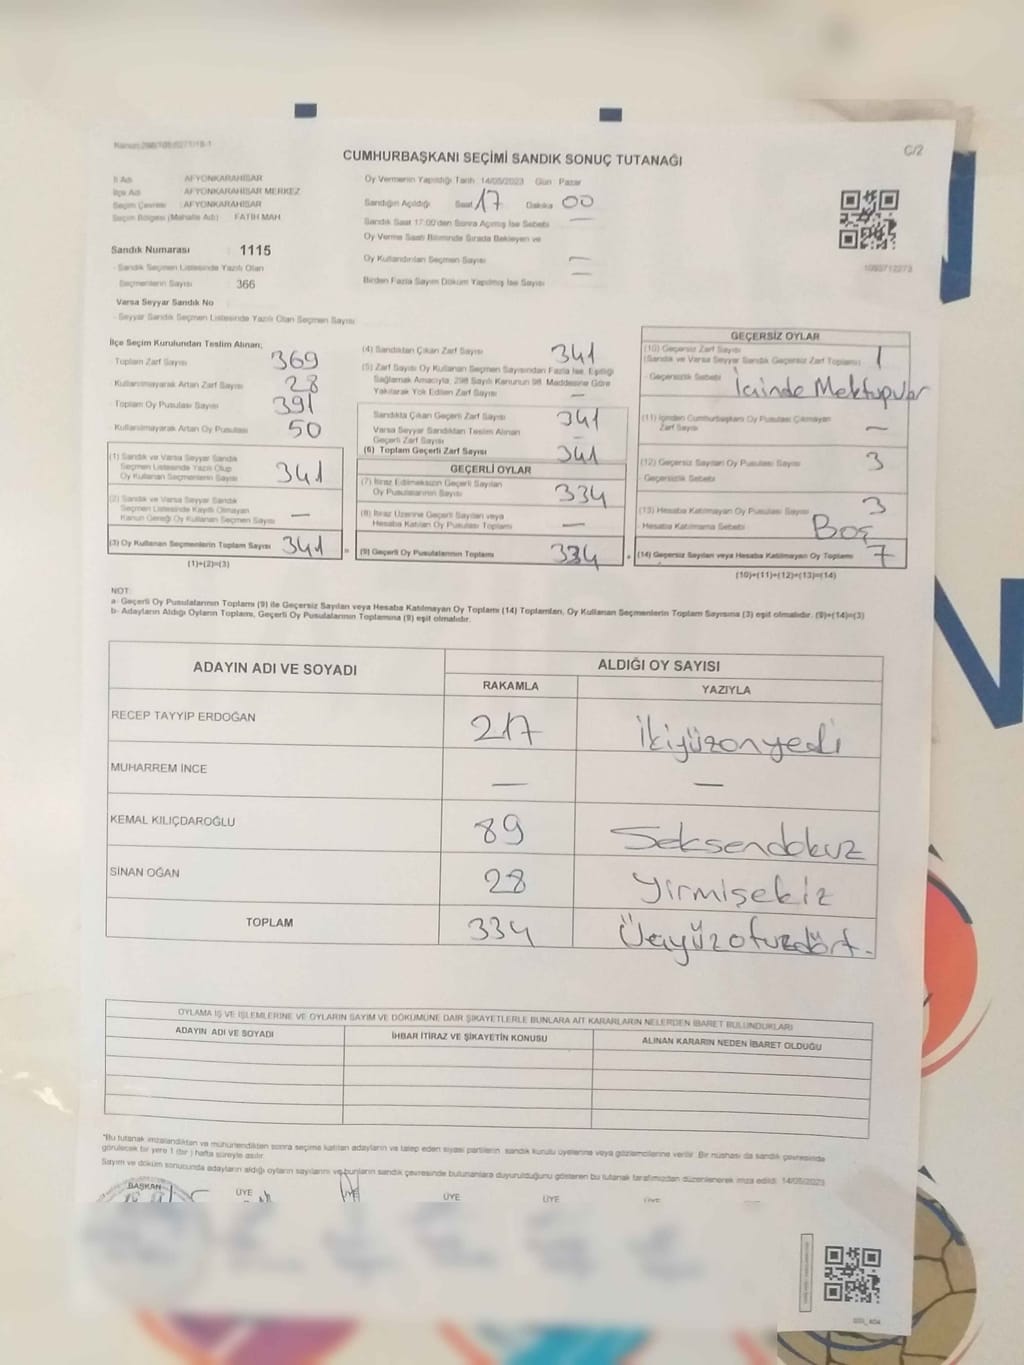 C/2
CUMHURBAŞKANI SEÇİMİ SANDIK SONUÇ TUTANAĞI
İl Adı : AFYONKARAHİSAR
İlçe Adı : AFYONKARAHİSAR MERKEZ
Seçim Çevresi : AFYONKARAHİSAR
Seçim Bölgesi (Mahalle Adı) : FATİH MAH
Sandık Numarası : 1115
- Sandık Seçmen Listesinde Yazılı Olan
Seçmenlerin Sayısı : 366
Varsa Seyyar Sandık No
- Seyyar Sandık Seçmen Listesinde Yazılı Olan Seçmen Sayısı
Oy Vermenin Yapıldığı Tarih : 14/05/2023 Gün : Pazar
Sandığın Açıldığı Saat 17 Dakika 00
Sandık Saat 17:00'den Sonra Açılmış İse Sebebi —
Oy Verme Saati Bitiminde Sırada Bekleyen ve
Oy Kullandırılan Seçmen Sayısı —
Birden Fazla Sayım Döküm Yapılmış İse Sayısı —
1093712273
İlçe Seçim Kurulundan Teslim Alınan;
- Toplam Zarf Sayısı 369
- Kullanılmayarak Artan Zarf Sayısı 28
- Toplam Oy Pusulası Sayısı 391
- Kullanılmayarak Artan Oy Pusulası 50
(1) Sandık ve Varsa Seyyar Sandık
Seçmen Listesinde Yazılı Olup
Oy Kullanan Seçmenlerin Sayısı 341
(2) Sandık ve Varsa Seyyar Sandık
Seçmen Listesinde Kayıtlı Olmayan
Kanun Gereği Oy Kullanan Seçmen Sayısı —
(3) Oy Kullanan Seçmenlerin Toplam Sayısı 341
(1)+(2)=(3)
(4) Sandıktan Çıkan Zarf Sayısı 341
(5) Zarf Sayısı Oy Kullanan Seçmen Sayısından Fazla İse, Eşitliği
Sağlamak Amacıyla, 298 Sayılı Kanunun 98. Maddesine Göre
Yakılarak Yok Edilen Zarf Sayısı —
Sandıkta Çıkan Geçerli Zarf Sayısı 341
Varsa Seyyar Sandıktan Teslim Alınan
Geçerli Zarf Sayısı —
(6) Toplam Geçerli Zarf Sayısı 341
GEÇERLİ OYLAR
(7) İtiraz Edilmeksizin Geçerli Sayılan
Oy Pusulalarının Sayısı 334
(8) İtiraz Üzerine Geçerli Sayılan veya
Hesaba Katılan Oy Pusulası Toplamı —
= (9) Geçerli Oy Pusulalarının Toplamı 334
GEÇERSİZ OYLAR
(10) Geçersiz Zarf Sayısı
(Sandık ve Varsa Seyyar Sandık Geçersiz Zarf Toplamı) 1
- Geçersizlik Sebebi İçinde Mektupvar
(11) İçinden Cumhurbaşkanı Oy Pusulası Çıkmayan
Zarf Sayısı —
(12) Geçersiz Sayılan Oy Pusulası Sayısı 3
- Geçersizlik Sebebi
(13) Hesaba Katılmayan Oy Pusulası Sayısı 3
- Hesaba Katılmama Sebebi Boş
+ (14) Geçersiz Sayılan veya Hesaba Katılmayan Oy Toplamı 7
(10)+(11)+(12)+(13)=(14)
NOT:
a- Geçerli Oy Pusulalarının Toplamı (9) ile Geçersiz Sayılan veya Hesaba Katılmayan Oy Toplamı (14) Toplamları, Oy Kullanan Seçmenlerin Toplam Sayısına (3) eşit olmalıdır. (9)+(14)=(3)
b- Adayların Aldığı Oyların Toplamı, Geçerli Oy Pusulalarının Toplamına (9) eşit olmalıdır.
ADAYIN ADI VE SOYADI ALDIĞI OY SAYISI
RAKAMLA YAZIYLA
RECEP TAYYİP ERDOĞAN 217 İkiyüzonyedi
MUHARREM İNCE — —
KEMAL KILIÇDAROĞLU 89 Seksendokuz
SİNAN OĞAN 28 Yirmisekiz
TOPLAM 334 Üçyüzotuzdört.
OYLAMA İŞ VE İŞLEMLERİNE VE OYLARIN SAYIM VE DÖKÜMÜNE DAİR ŞİKAYETLERLE BUNLARA AİT KARARLARIN NELERDEN İBARET BULUNDUKLARI
ADAYIN ADI VE SOYADI İHBAR İTİRAZ VE ŞİKAYETİN KONUSU ALINAN KARARIN NEDEN İBARET OLDUĞU
*Bu tutanak imzalandıktan ve mühürlendikten sonra seçime katılan adayların ve talep eden siyasi partilerin sandık kurulu üyelerine veya gözlemcilerine verilir. Bir nüshası da sandık çevresinde
görülecek bir yere 1 (bir) hafta süreyle asılır.
Sayım ve döküm sonucunda adayların aldığı oyların sayılarını ve bunların sandık çevresinde bulunanlara duyurulduğunu gösteren bu tutanak tarafımızdan düzenlenerek imza edildi. 14/05/2023
BAŞKAN ÜYE ÜYE ÜYE ÜYE ÜYE
N